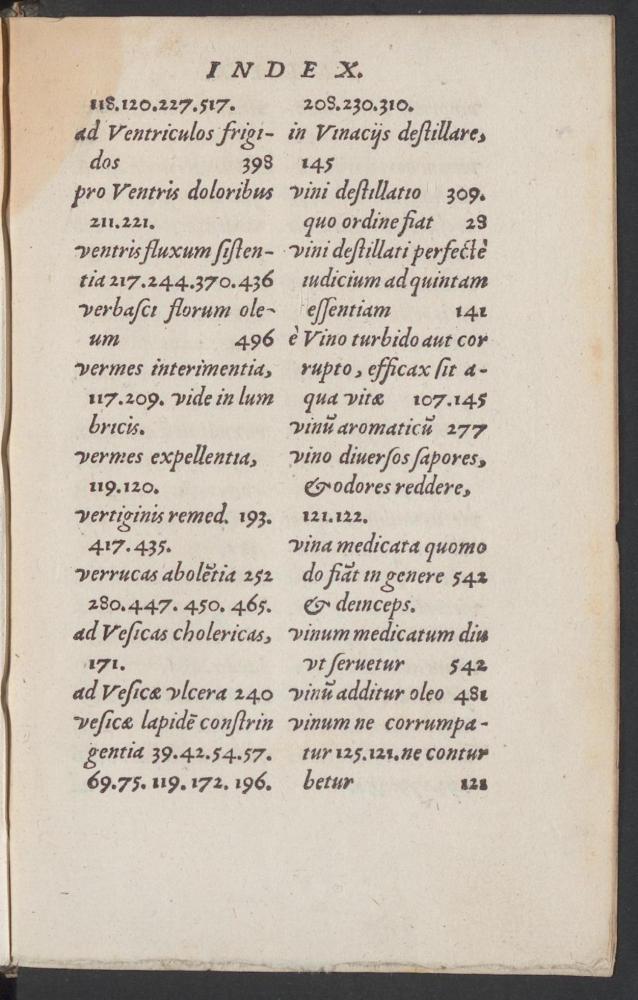 INDEX.
118.120.227.517.
ad Ventriculos frigi-
dos 398
pro Ventris doloribus
211.221.
ventris fluxum ſiſten-
tia 217.244.370.436
verbaſci florum ole-
um 496
vermes interimentia,
117.209. vide in lum
bricis.
vermes expellentia,
119.120.
vertiginis remed. 193.
417.435.
verrucas abolẽtia 252
280.447. 450. 465.
ad Veſicas cholericas,
171.
ad Veſicæ vlcera 240
veſicæ lapidẽ conſtrin
gentia 39.42.54.57.
69.75. 119. 172. 196.
208.230.310.
in Vinacijs deſtillare,
145
vini deſtillatio 309.
quo ordine fiat 28
vini deſtillati perfectè
iudicium ad quintam
eſſentiam 141
è Vino turbido aut cor
rupto, efficax ſit a-
qua vitæ 107.145
vinũ aromaticũ 277
vino diuerſos ſapores,
& odores reddere,
121.122.
vina medicata quomo
do fiãt in genere 542
& deinceps.
vinum medicatum diu
vt ſeruetur 542
vinũ additur oleo 481
vinum ne corrumpa-
tur 125.121. ne contur
betur 121